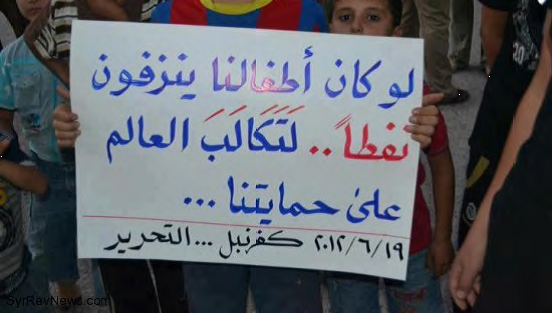 لو كان أطفالنا ينزفون
نفطاً .. لَتَكَالَبَ العالم
على حمايتنا ...
٢٠١٢/٦/١٩ كفرنبل ... التحرير
SyrRevNews.com